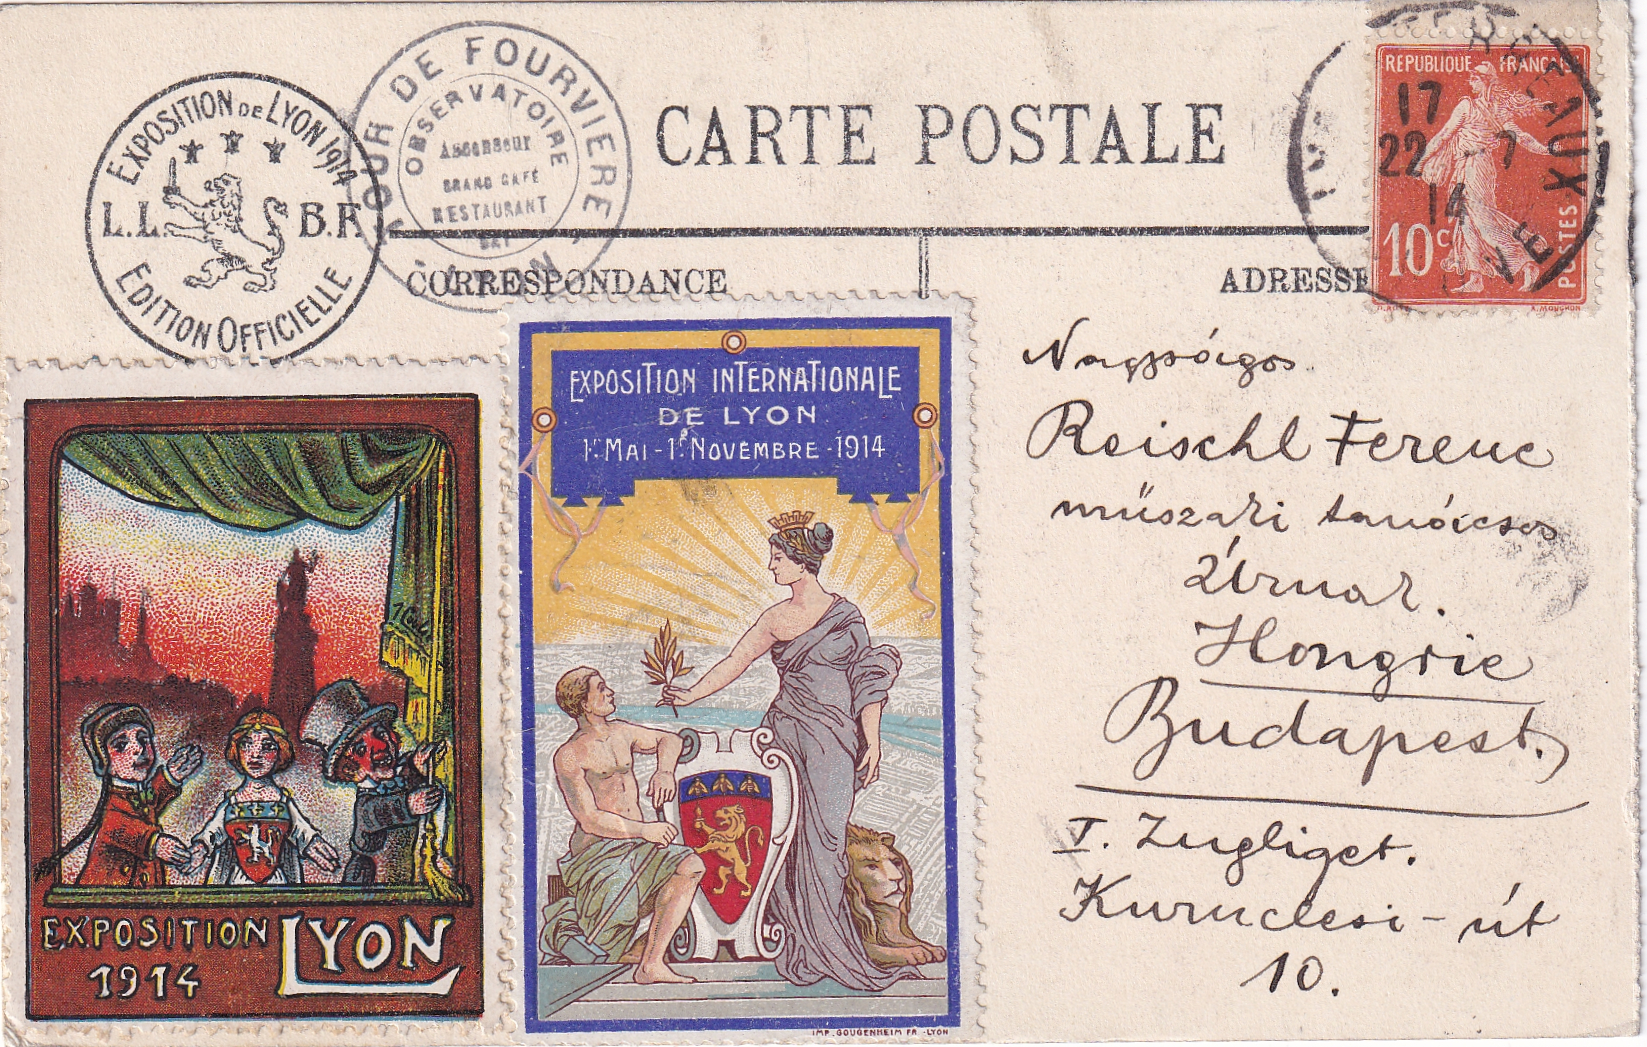 EXPOSITION DE LYON 1914
L.L. B.F.
EDITION OFFICIELLE
TOUR DE FOURVIERE
OBSERVATOIRE
Ascenseur
GRAND CAFÉ
RESTAURANT
LYON
CARTE POSTALE
CORRESPONDANCE
ADRESSE
REPUBLIQUE FRANÇAISE
10c
POSTES
E. MOUCHON
17
22 - 7
14
TERREAUX
EXPOSITION INTERNATIONALE
DE LYON
1r. MAI - 1r. NOVEMBRE - 1914
IMP. GOUGENHEIM FR - LYON
EXPOSITION LYON
1914
Nagyságos
Reischl Ferenc
műszaki tanácsos
Úrnak.
Hongrie
Budapest.
I. Zugliget.
Kuruclesi-út
10.